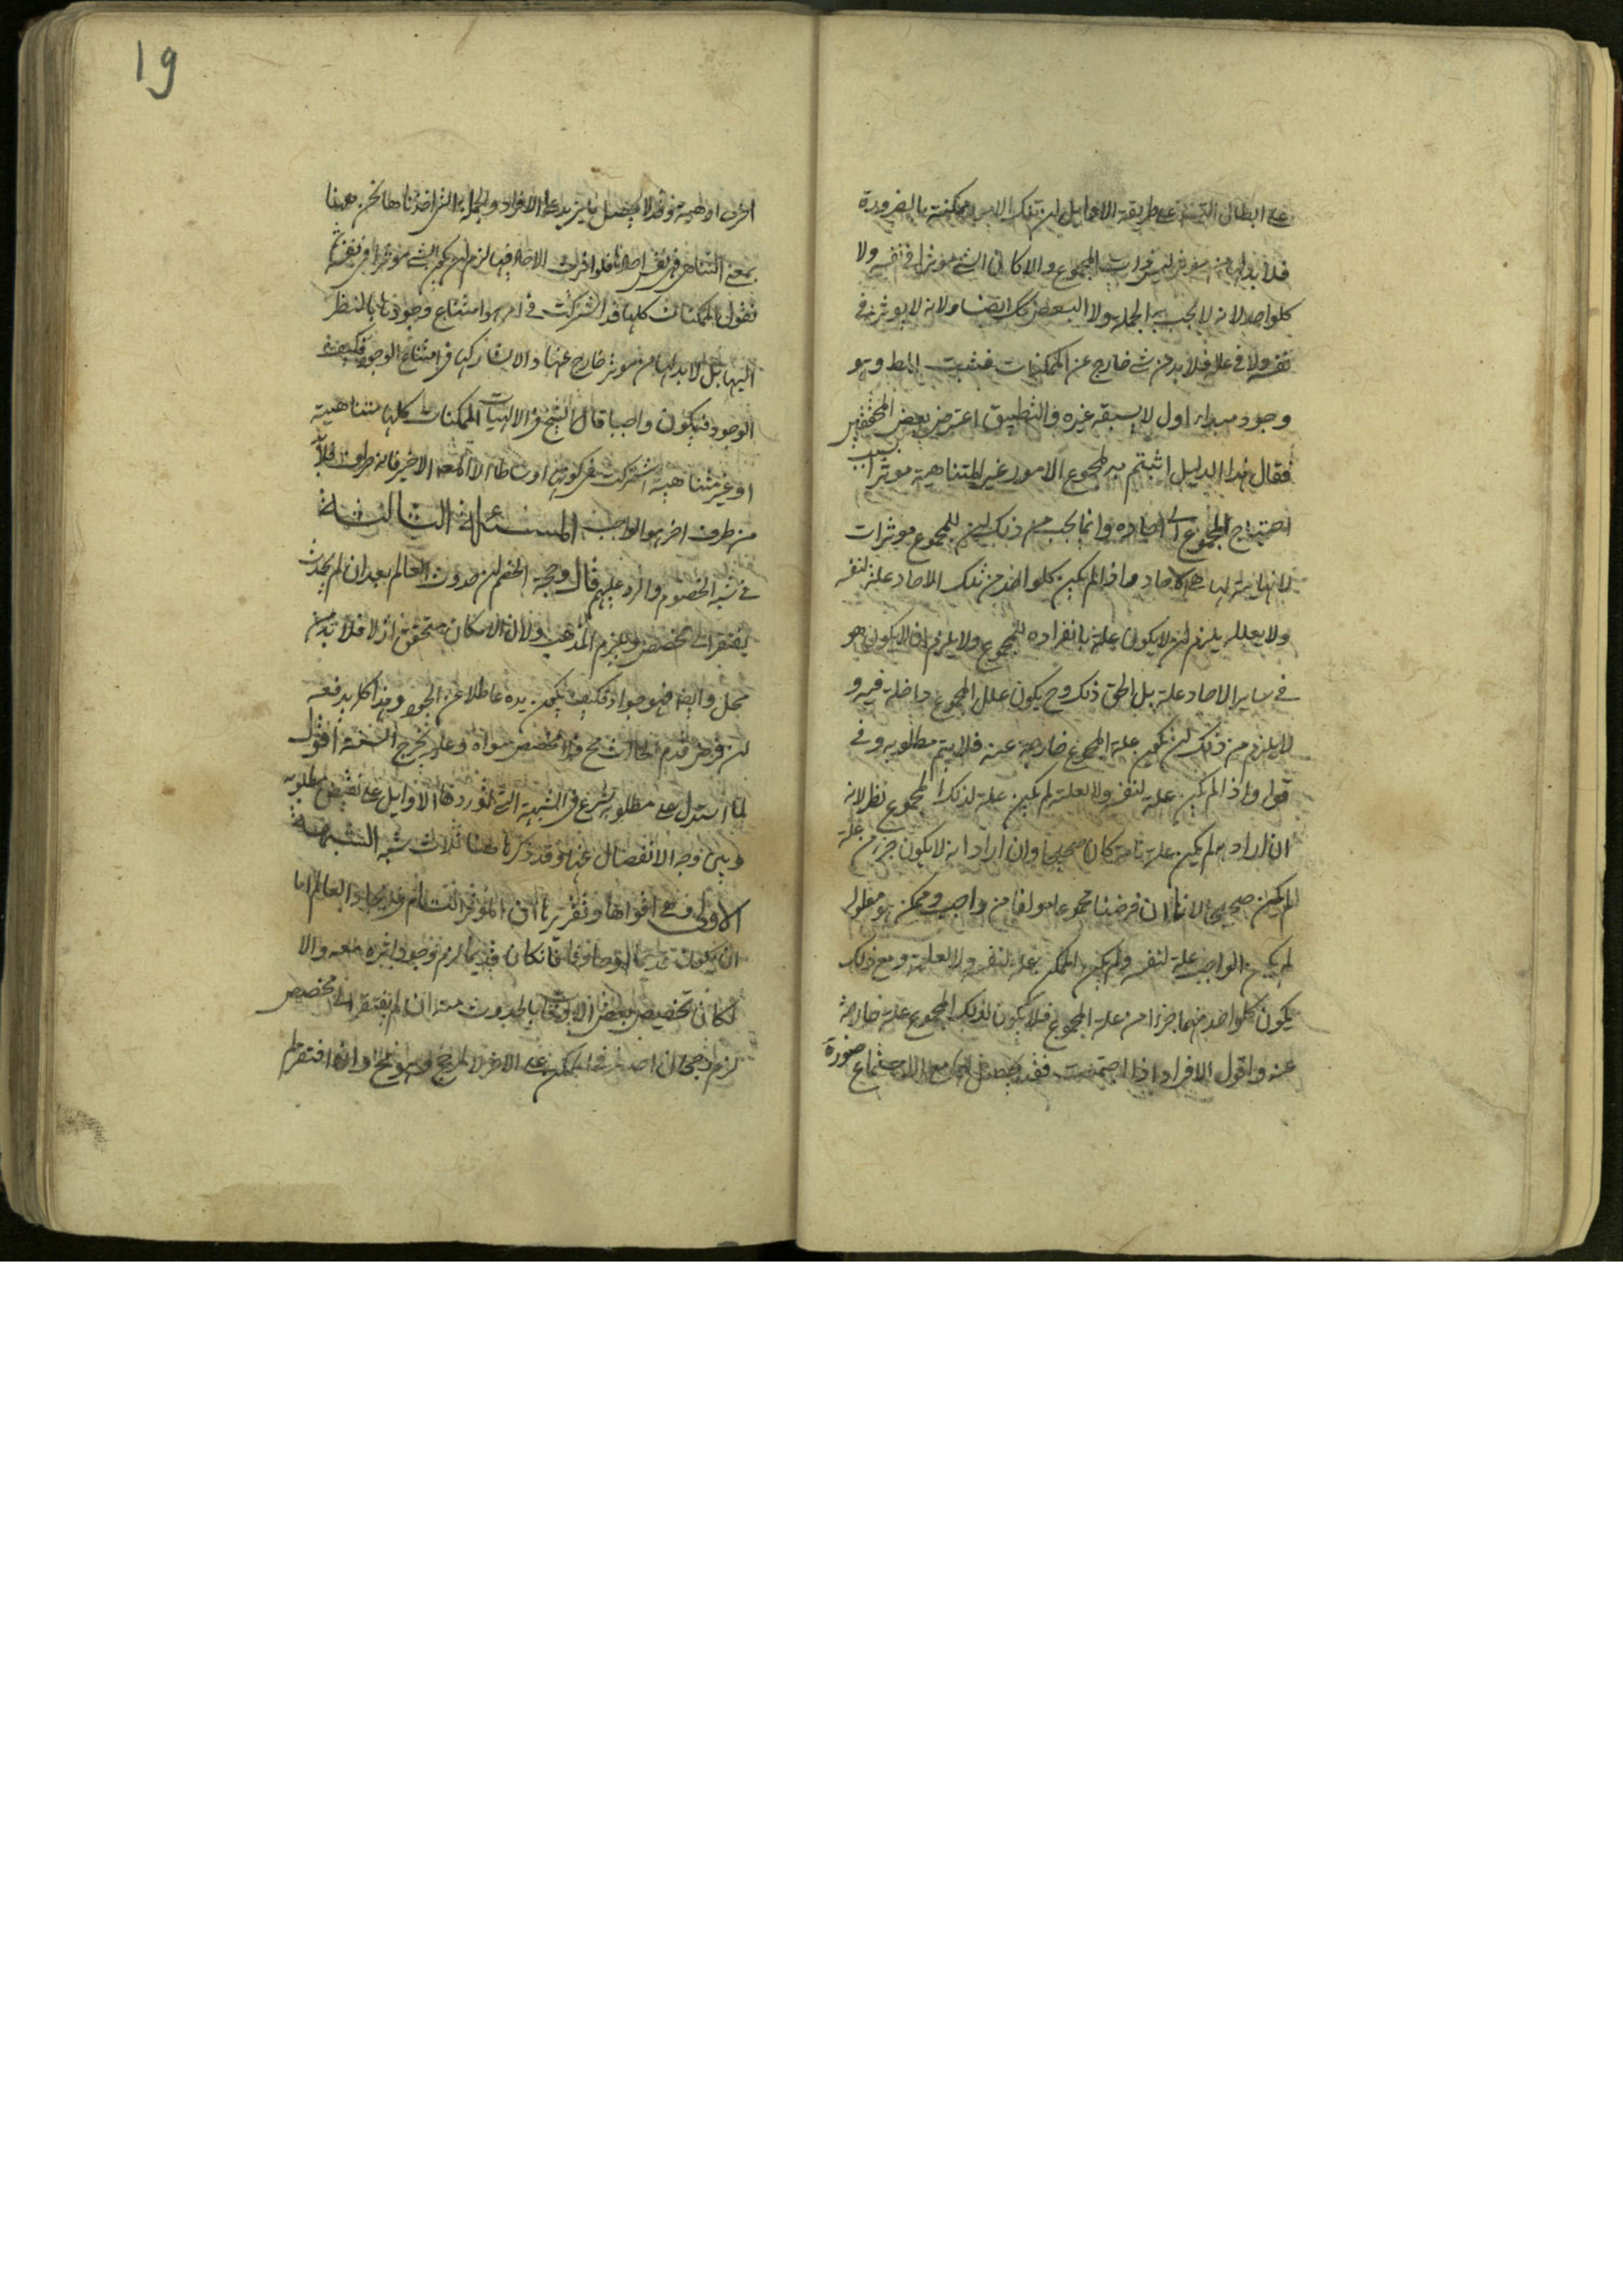 على ابطال التسلسل على طريقة الاوايل ان تلك ممكنة بالضرورة
فلا بد لها من موثر ليس ذات المجموع والا كان الشي موثرا في نفسه ولا
كلواحد لانه لا يجب به الجملة ولا البعض لذلك ايضا ولانه لا يوثر في
نفسه ولا في علله فلا بد من شي خارج عن الممكنات فثبت المط وهو
وجود مبداء اول لا يسبقه غيره والتطبيق اعترض بعض المحققين
فقال هذا الدليل اثبتم به لمجموع الامور غير المتناهية موثرا بسبب
احتياج المجموع الى احاده وانما يجب من ذلك ان للمجموع موثرات
لا نهاية لها هي الاحاد واذا لم يكن كلواحد من تلك الاحاد علة لنفسه
ولا لعلله يلزم ان لا يكون علة بانفراده للمجموع ولا يلزم ان لا يكون هو
في ساير الاحاد علة بل الحق ذلك وح يكون علل المجموع داخلة فيه و
لا يلزم من ذلك ان يكون علة المجموع خارجة عنه فلا يتم مطلوبه وفي
قوله واذا لم يكن علة لنفسه ولا لعلته لم يكن علة لذلك المجموع نظر لانه
ان اراد به لم يكن علة تامة كان صحيحا وان اراد انه لا يكون جزءا من علة
لم يكن صحيحا لانا ان فرضنا مجموعا مولفا من واجب وممكن هو معلوله
لم يكن الواجب علة لنفسه ولم يكن الممكن علة لنفسه ولا لعلته ومع ذلك
يكون كلواحد منهما جزءا من علة المجموع فلا يكون لذلك المجموع علة خارجة
عنه واقول الافراد اذا اجتمعت فقد يحصل لها مع الاجتماع صورة
19
اخرى او هيئة وقد لا يحصل ما يزيد على الافراد والجملة التي اخذناها نحن ههنا
بمعنى الثاني هي نفس احادها فلو اثرت الاحاد فيها لزم ان يكون الشي موثرا في نفسه ثم
نقول الممكنات كلها قد اشتركت في امر هو امتناع وجودها بالنظر
اليها بل لا بد لها من موثر خارج عنها والا لشاركها في امتناع الوجود فكيف
الوجود فيكون واجبا قال الشيخ في الالهيات الممكنات كلها متناهية
او غير متناهية اشتركت في كونها اوساطا الا المعلول الاخير فانه طرف فلا بد
من طرف اخر هو الواجب المسئلة الثالثة
في شبه الخصوم والرد عليهم قال وحجة الخصم ان حدوث العالم بعد ان لم يحدث
يفتقر الى مخصص ويلزم المذهب ولان الامكان متحقق ازلا فلا بد من
محل وايضا فهو جواد فكيف يكون يده عاطلا عن الجود وهذا كله يدفعه
ان فرض قدم الحادث مح فلا مخصص سواه وعليه نخرج الشبهة اقول
لما استدل على مطلوبه شرع في الشبهة التي اوردها الاوايل على نقيض مطلوبه
وبين وجه الانفصال عنها وقد ذكر ههنا ثلاث شبه الشبهة
الاولى وهي اقواها وتقريرها ان الموثر التام في ايجاد العالم اما
ان يكون قديما او حادثا فان كان قديما لزم وجود اثره معه والا
لكان تخصيص بعض الاوقات بالحدوث منه ان لم يفتقر الى مخصص
لزم رجحان احد طرفي الممكن على الاخر لا لمرجح وهو مح وان افتقر لم